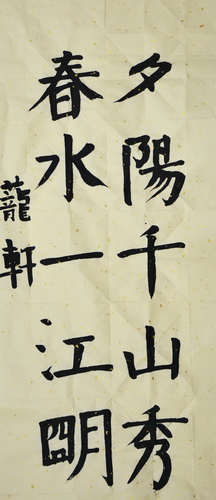 夕陽千山秀
春水一江朙
蘢軒